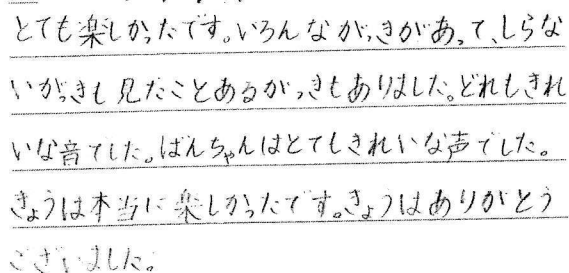 とても楽しかったです。いろんながっきがあって、しらな
いがっきも見たことあるがっきもありました。どれもきれ
いな音でした。ばんちゃんはとてもきれいな声でした。
きょうは本当に楽しかったです。きょうはありがとう
ございました。